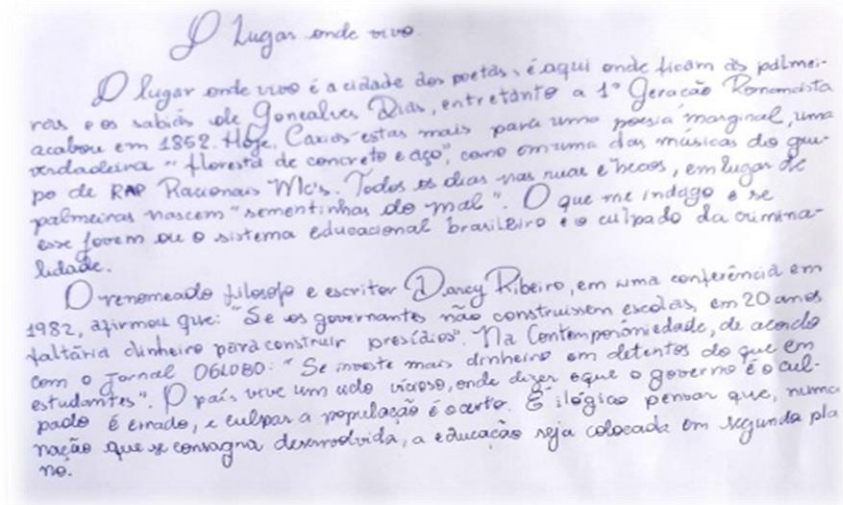 O lugar onde vivo
O lugar onde vivo é a cidade dos poetas, é aqui onde ficam as palmei-
ras e os sabiás de Goncalves Dias, entretanto a 1ª Geração Romancista
acabou em 1852. Hoje, Caxias estas mais para uma poesia marginal, uma
verdadeira "floresta de concreto e aço", como em uma das músicas do gru-
po de RAP Racionais Mc's. Todos os dias nas ruas e becos, em lugar de
palmeiras nascem "sementinhas do mal". O que me indago e se
esse jovem ou o sistema educacional brasileiro e o culpado da crimina-
lidade.
O renomeado filosofo e escritor Darcy Ribeiro, em uma conferência em
1982, afirmou que: "Se os governantes não construissem escolas, em 20 anos
faltária dinheiro para construir presídios". Na Contemporâniedade, de acordo
com o jornal OGLOBO: "Se investe mais dinheiro em detentos do que em
estudantes". O país vive um ciclo vicioso, onde dizer o que o governo é o cul-
pado é errado, e culpar a população é o certo. É ilógico pensar que, numa
nação que se consagra desenvolvida, a educação seja colocada em segundo pla
no.